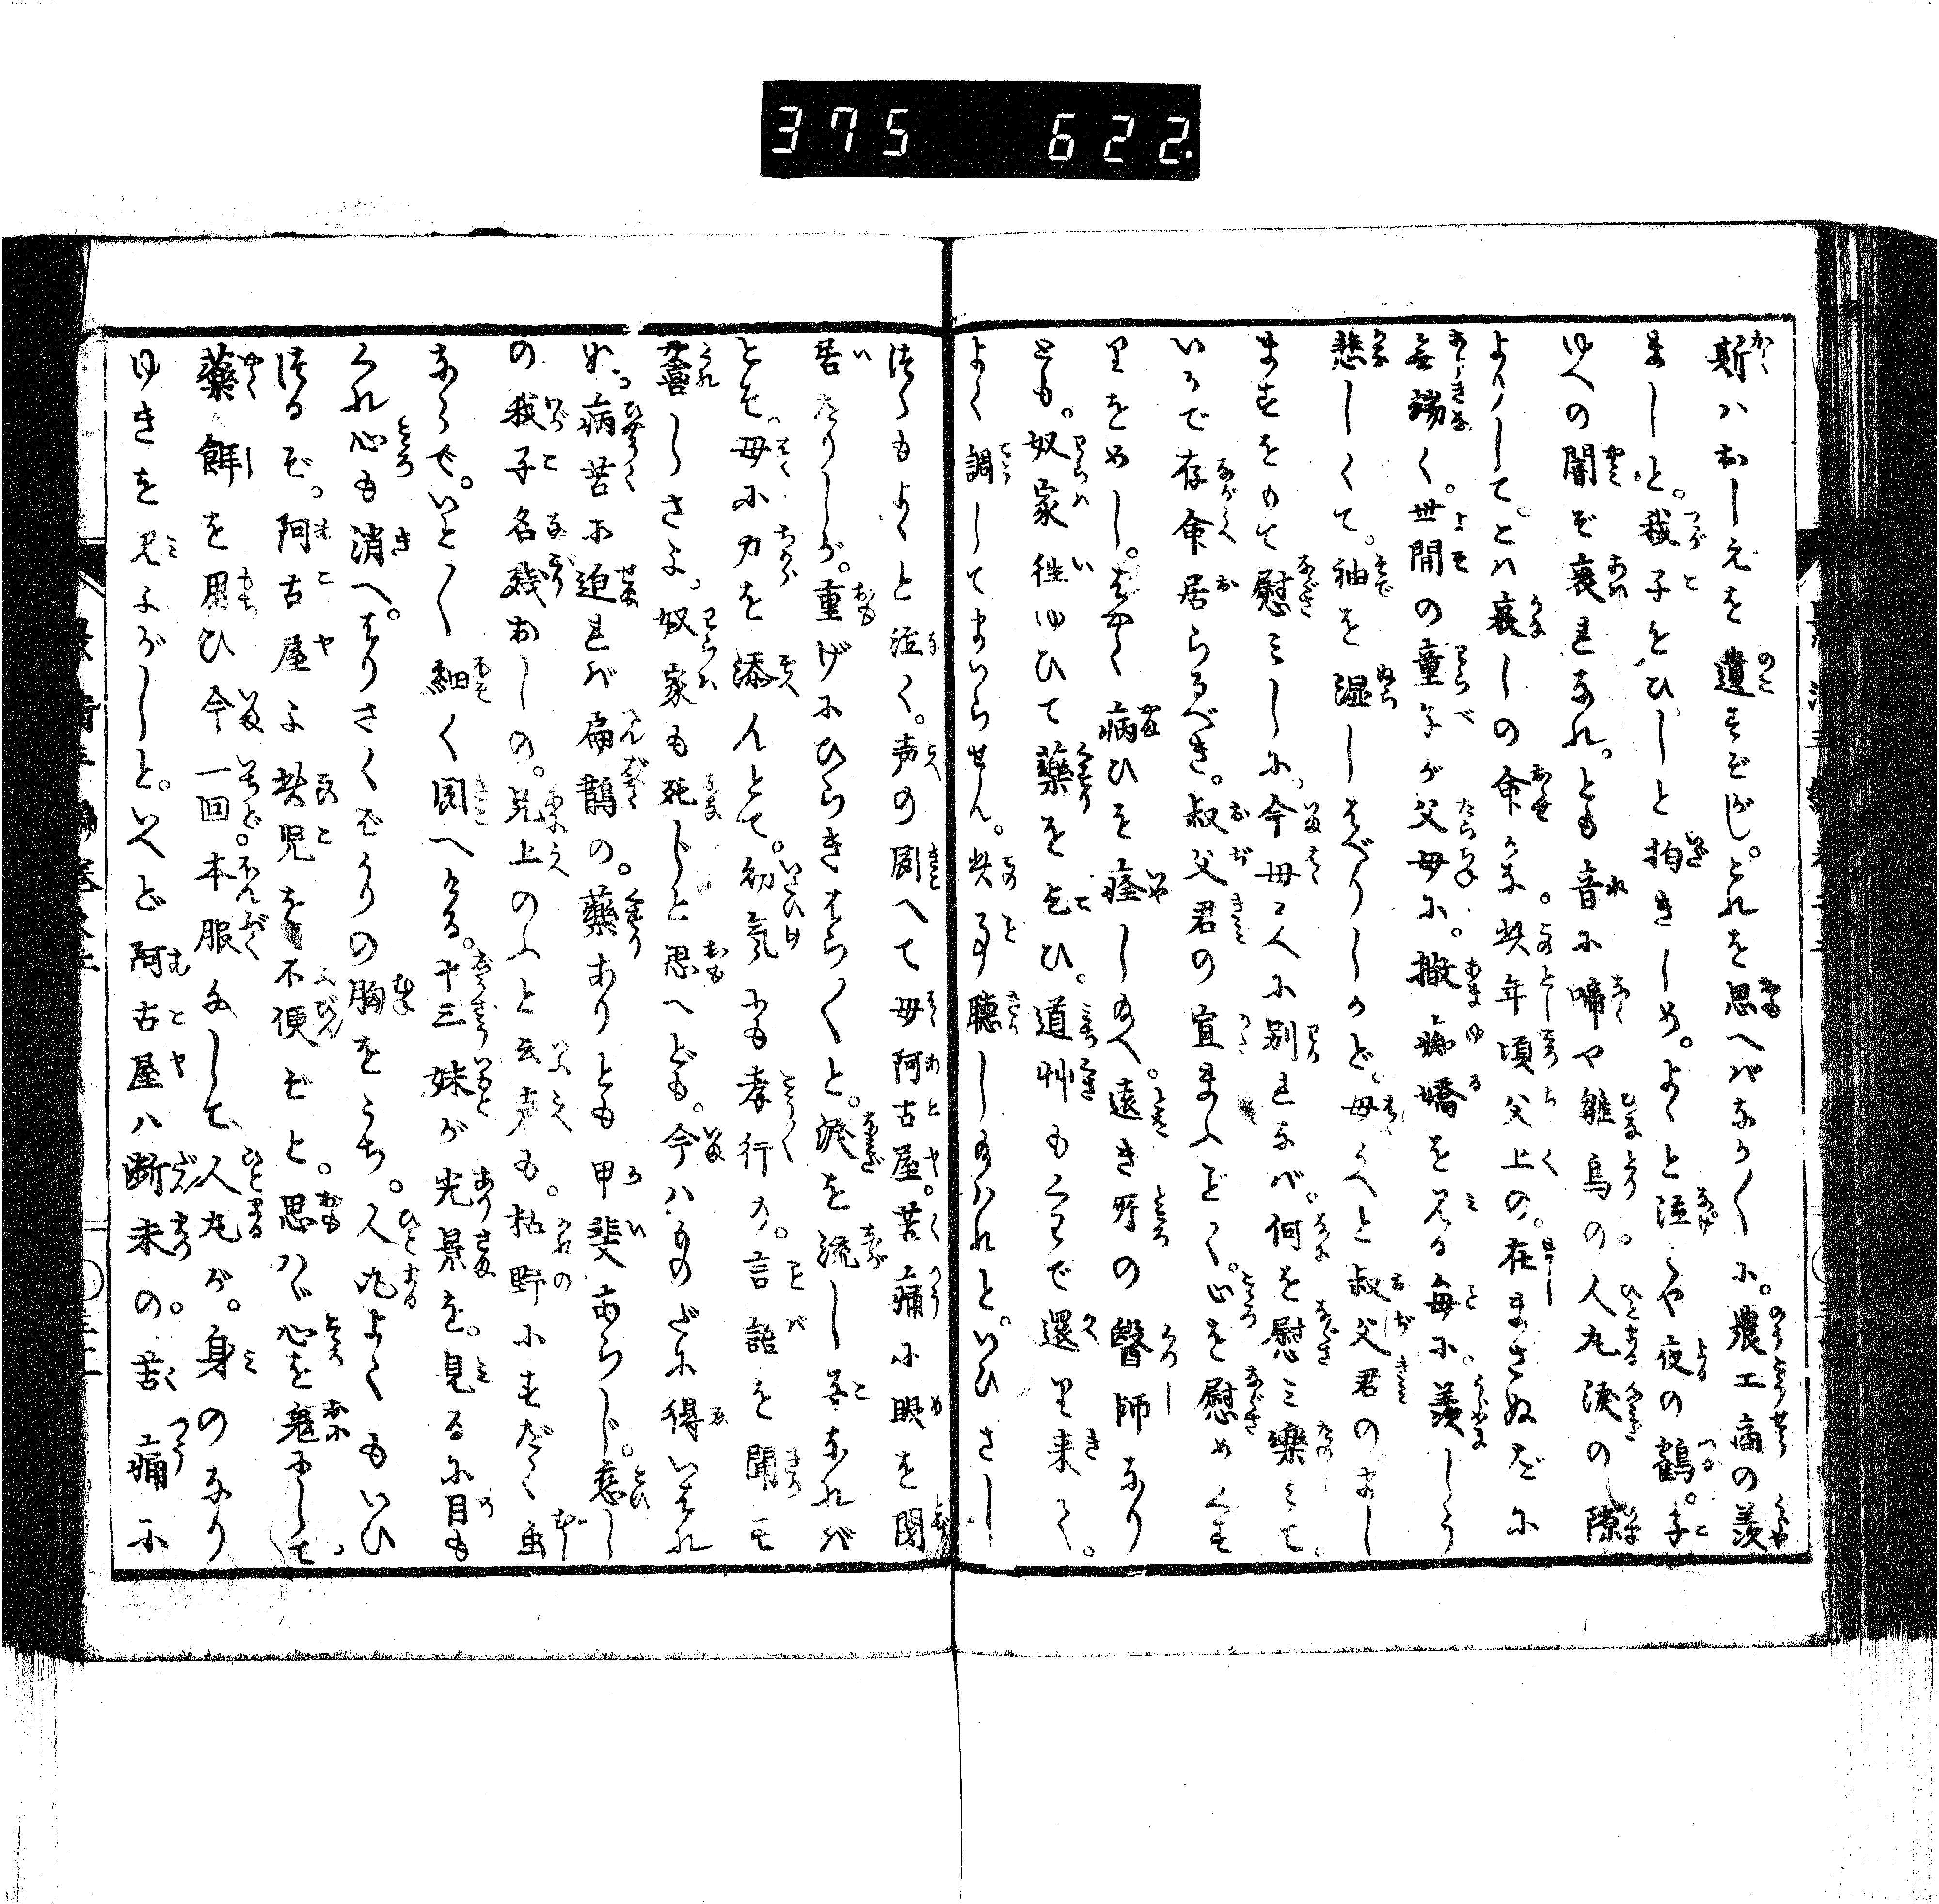 375 622
斯ハおしえを遺さざじ。とれを思へバなか〳〵に。農工商の羨
ましと。我子をひしと抱きしめ。よゝと泣くや夜の鶴。子
ゆへの闇ぞ哀れなれ。とも音に啼や雛鳥の。人丸涙の隙
よりして。とハ哀しの命かな。此年頃父上の。在まさぬだに
無端く。世間の童子が父母に。撒痴嬌を見る毎に。羨しう
悲しくて。袖を湿しはべりしかど。母うへと叔父君のまし
ますをもて慰みしに。今母うへに別れなバ。何を慰み楽みて。
いかで存命居らるべき。叔父君の宣まふごとく。心を慰め玉
りをめし。はやく病ひを痊し給へ。遠き所の醫師なり
とも。奴家徃ゆひて藥を乞ひ。道艸もくはで還り来て。
よく調してまいらせん。此事聽し給はれと。いひさし
つゝもよゝと泣く。声の聞へて母阿古屋。苦痛に眼を閉
居たりしが。重げにひらきはら〳〵と。涙を流し子なれバ
とて。母に力を添んとて。幼気にも孝行な。言語を聞て
喜しさよ。奴家も死じと思へども。今ハものだに得いはれ
ぬ。病苦に迫れバ扁鵲の。藥ありとも甲斐あらじ。恋し
の我子名残おしの。兄上のふと云声も。枯野にすだく虫
ならで。いと〳〵細く聞へける。十三妹が光景を。見るに目も
くれ心も消へ。はりさくばかりの胸をうち。人丸よくもいひ
つるぞ。阿古屋よ此児を不便ぞと。思ハゞ心を鬼にして。
藥餌を用ひ今一回。本服なして人丸が。身のなり
ゆきを見よがしと。いへど阿古屋ハ断末の。苦痛に